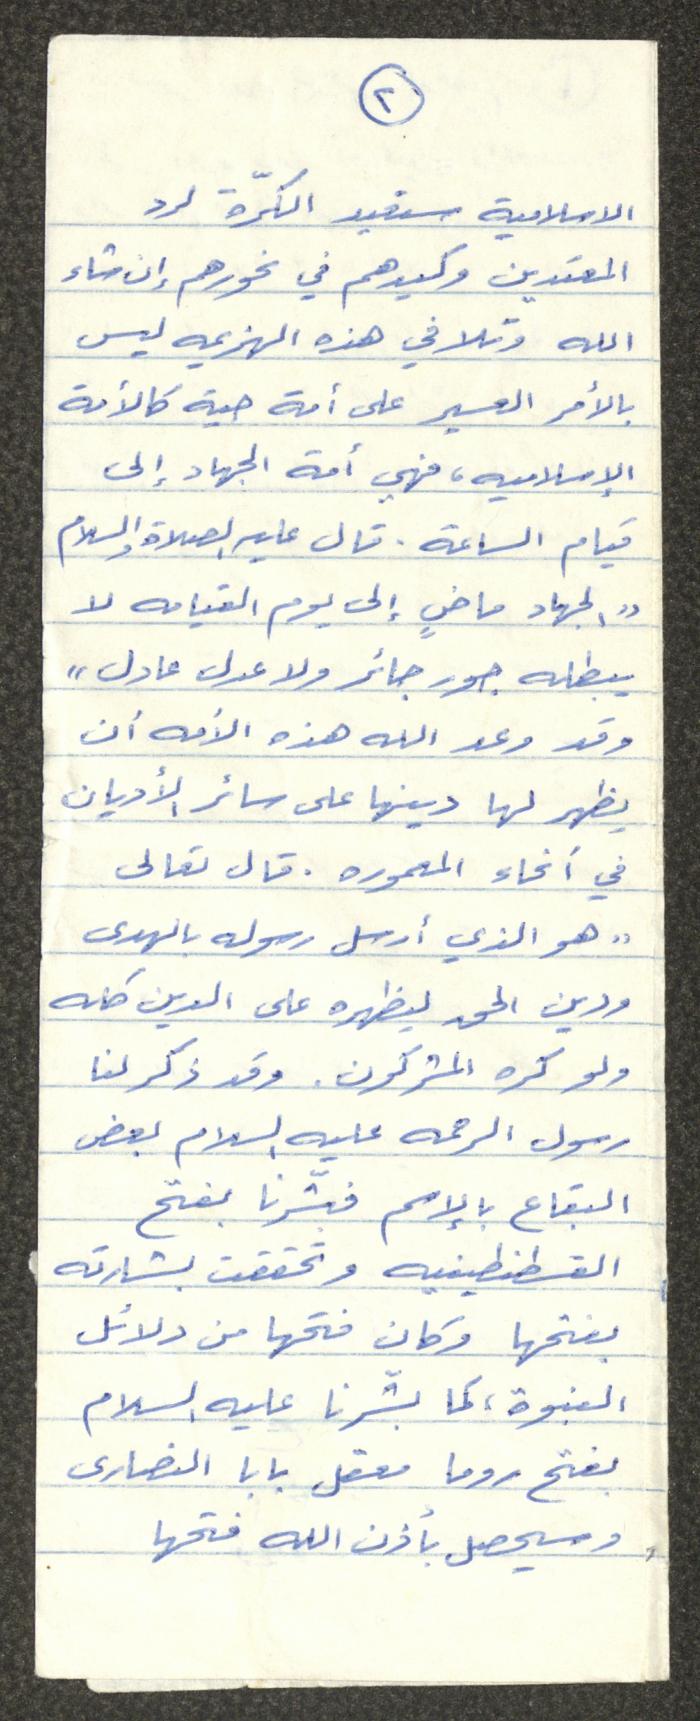 ٢
الاسلامية ستعيد الكرّة لرد
المعتدين وكيدهم في نحورهم إن شاء
الله وتلافي هذه الهزيمه ليس
بالأمر العسير على أمة حية كالأمة
الإسلاميه، فهي أمة الجهاد إلى
قيام الساعة. قال عليه الصلاة والسلام
"الجهاد ماضٍ إلى يوم القيامه لا
يبطله جور جائر ولا عدل عادل"
وقد وعد الله هذه الأمه أن
يظهر لها دينها على سائر الأديان
في أنحاء المعموره. قال تعالى
"هو الذي أرسل رسوله بالهدى
ودين الحق ليظهره على الدين كله
ولو كره المشركون. وقد ذكر لنا
رسول الرحمه عليه السلام بعض
البقاع بالإسم فبشّرنا بفتح
القسطنطينيه وتحققت بشارته
بفتحها وكان فتحها من دلائل
النبوة، كما بشّرنا عليه السلام
بفتح روما معقل بابا النصارى
وسيحصل بأذن الله فتحها